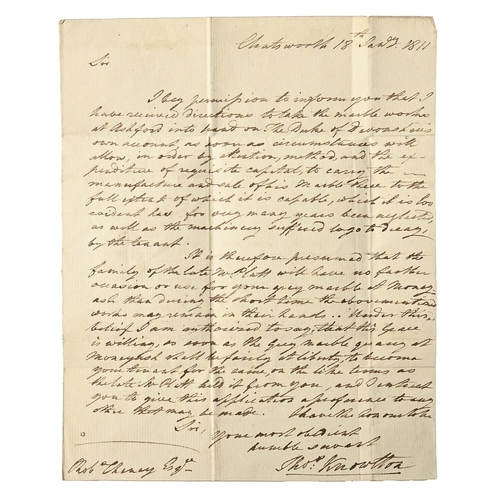 Chatsworth 18th Jany. 1811
Sir
I beg permission to inform you that I
have received directions to take the marble works
at Ashford into hand on The Duke of Devonshires
own account, as soon as circumstances will
allow, in order by attention, method, and the ex-
penditure of requisite capital, to carry the
manufacture and sale of his Marble there to the
full extent of which it is capable, which it is too
evident has for very many years been neglected,
as well as the machinery suffered to go to decay,
by the tenant.
It is therefore presumed that the
family of the late Mr. Platt will have no farther
occasion or use for your grey marble at Money
ash than during the short time the abovementioned
works may remain in their hands.. Under this
belief I am authorized to say, that His Grace
is willing, as soon as the Grey marble quarry at
Moneyash shall be fairly at liberty, to become
your tenant for the same, on the like terms as
the late Mr. Platt held it from you, and I intreat
you to give this application a preference to any
other that may be made. I have the honour to be
Sir,
Your most obedient
humble servant
Thos. Knowlton
Robt. Cheney Esqre.